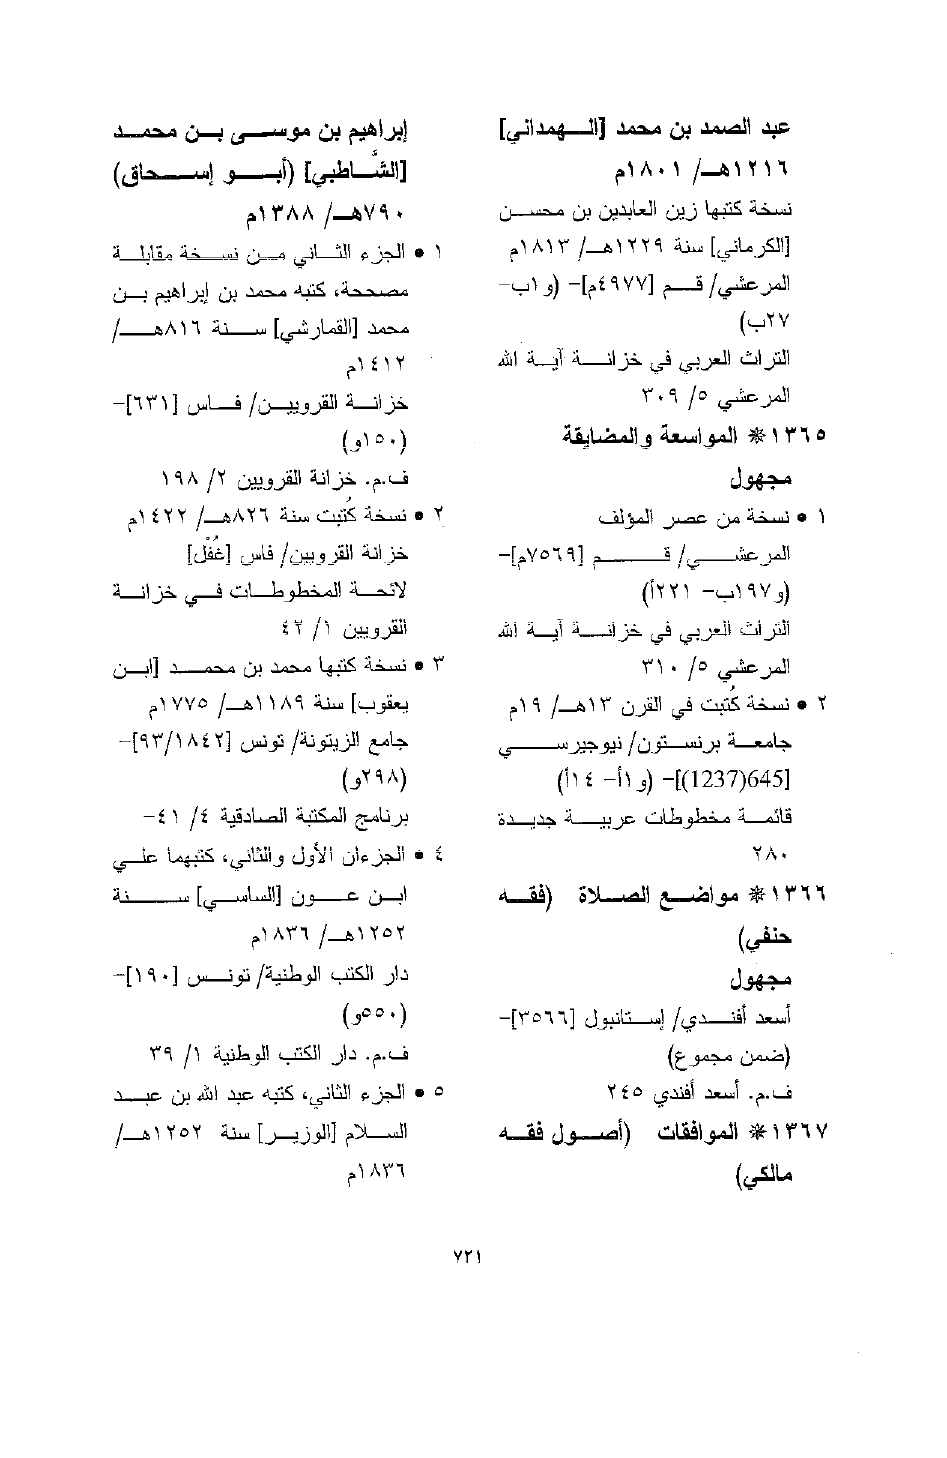 عبد الصمد بن محمد [الهمداني]
١٢١٦هـ/ ١٨٠١م
نسخة كتبها زين العابدين بن محسن
[الكرماني] سنة ١٢٢٩هـ/ ١٨١٣م
المرعشي/ قم [٤٩٧٧م]- (و١ب-
٢٧ب)
التراث العربي في خزانة آية الله
المرعشي ٥/ ٣٠٩
١٣٦٥* المواسعة والمضايقة
مجهول
١ • نسخة من عصر المؤلف
المرعشي/ قم [٧٥٦٩م]-
(و١٩٧ب- ٢٢١أ)
التراث العربي في خزانة آية الله
المرعشي ٥/ ٣١٠
٢ • نسخة كُتبت في القرن ١٣هـ/ ١٩م
جامعة برنستون/ نيوجيرسي
[645(1237)]- (و١أ- ١٤أ)
قائمة مخطوطات عربية جديدة
٢٨٠
١٣٦٦* مواضع الصلاة (فقه
حنفي)
مجهول
أسعد أفندي/ إستانبول [٣٥٦٦]-
(ضمن مجموع)
ف.م. أسعد أفندي ٢٤٥
١٣٦٧* الموافقات (أصول فقه
مالكي)
إبراهيم بن موسى بن محمد
[الشَّاطبي] (أبو إسحاق)
٧٩٠هـ/ ١٣٨٨م
١ • الجزء الثاني من نسخة مقابلة
مصححة، كتبه محمد بن إبراهيم بن
محمد [القمارشي] سنة ٨١٦هـ/
١٤١٢م
خزانة القرويين/ فاس [٦٣١]-
(١٥٠و)
ف.م. خزانة القرويين ٢/ ١٩٨
٢ • نسخة كُتبت سنة ٨٢٦هـ/ ١٤٢٢م
خزانة القرويين/ فاس [غُفْل]
لائحة المخطوطات في خزانة
القرويين ١/ ٤٢
٣ • نسخة كتبها محمد بن محمد [ابن
يعقوب] سنة ١١٨٩هـ/ ١٧٧٥م
جامع الزيتونة/ تونس [٩٣/١٨٤٢]-
(٢٩٨و)
برنامج المكتبة الصادقية ٤/ ٤١-
٤ • الجزءان الأول والثاني، كتبهما علي
ابن عون [الساسي] سنة
١٢٥٢هـ/ ١٨٣٦م
دار الكتب الوطنية/ تونس [١٩٠]-
(٥٥٠و)
ف.م. دار الكتب الوطنية ١/ ٣٩
٥ • الجزء الثاني، كتبه عبد الله بن عبد
السلام [الوزير] سنة ١٢٥٢هـ/
١٨٣٦م
٧٢١